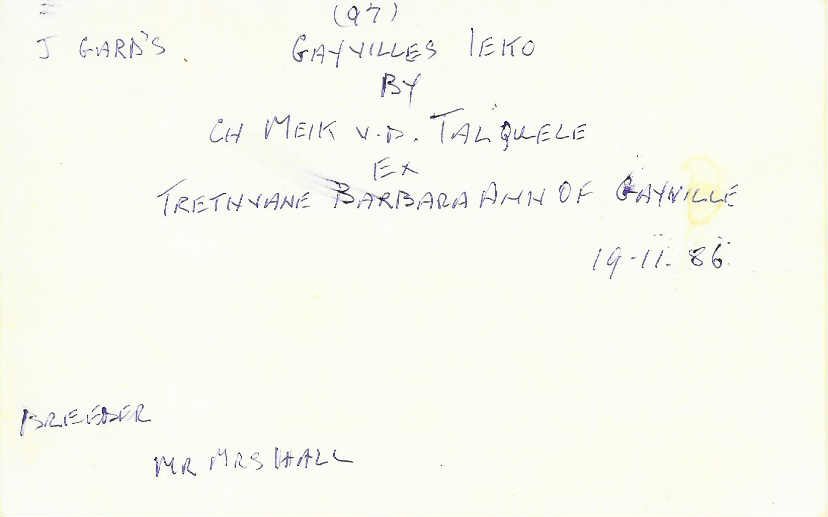 (97)
J GARD'S. GAYVILLES IEKO
BY
CH MEIK V.D. TALQUELE
EX
TRETHVANE BARBARA ANN OF GAYVILLE
19-11-86
BREEDER
MR MRS HALL